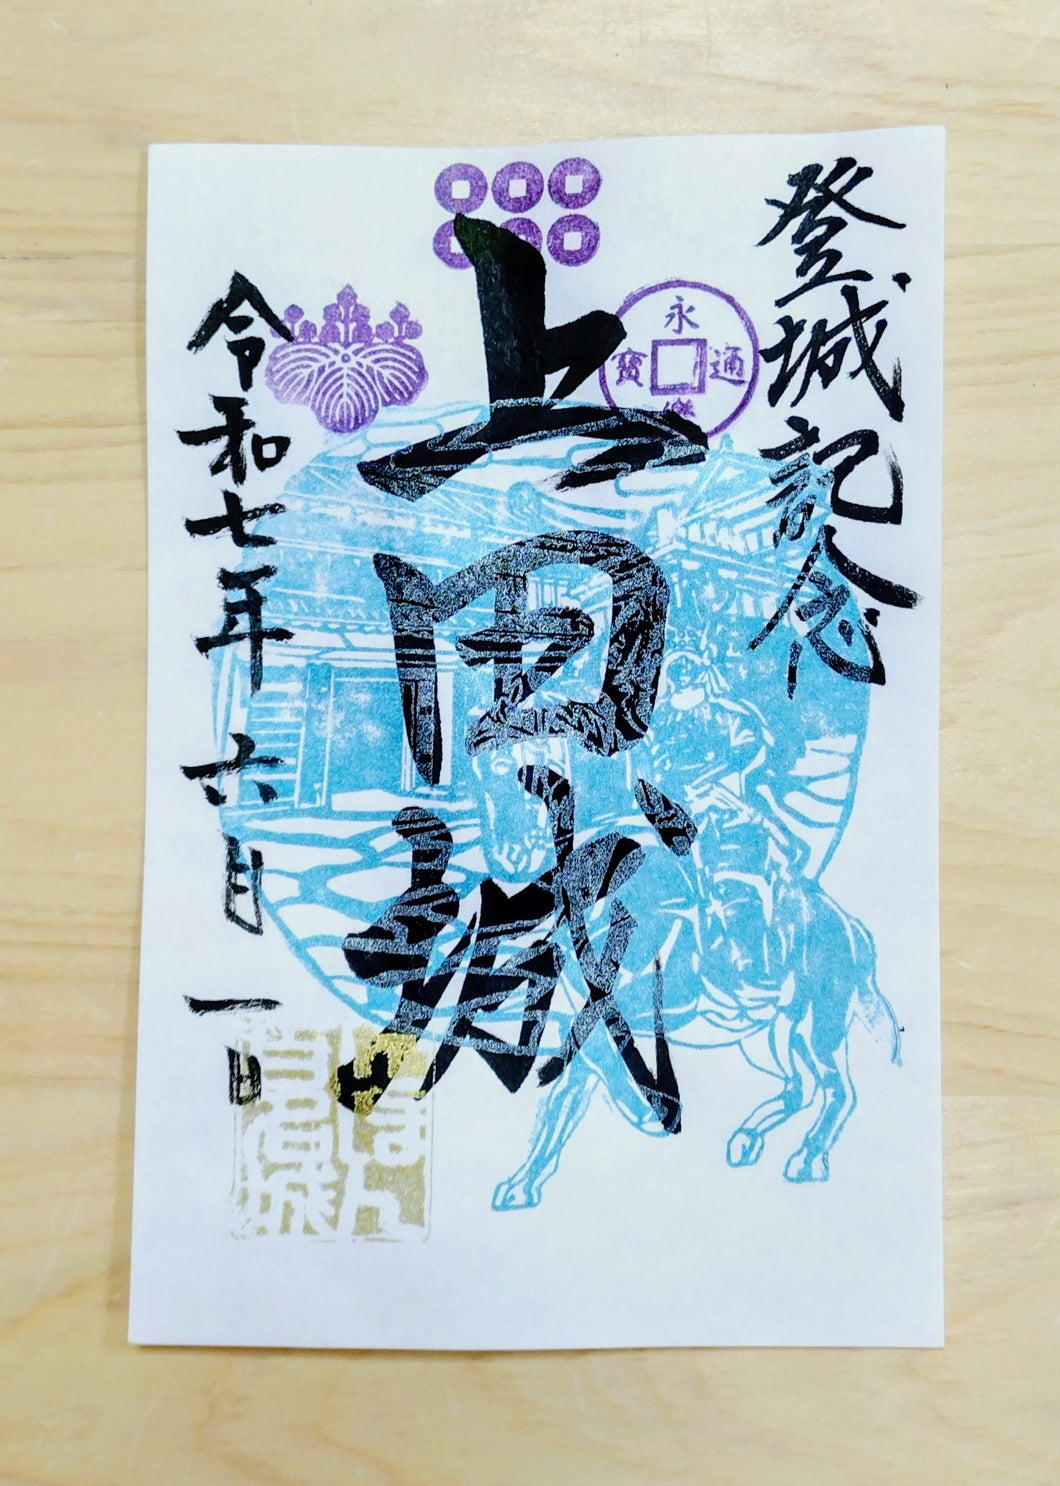 登城記念
永樂通寳
上田城
令和七年六月一日